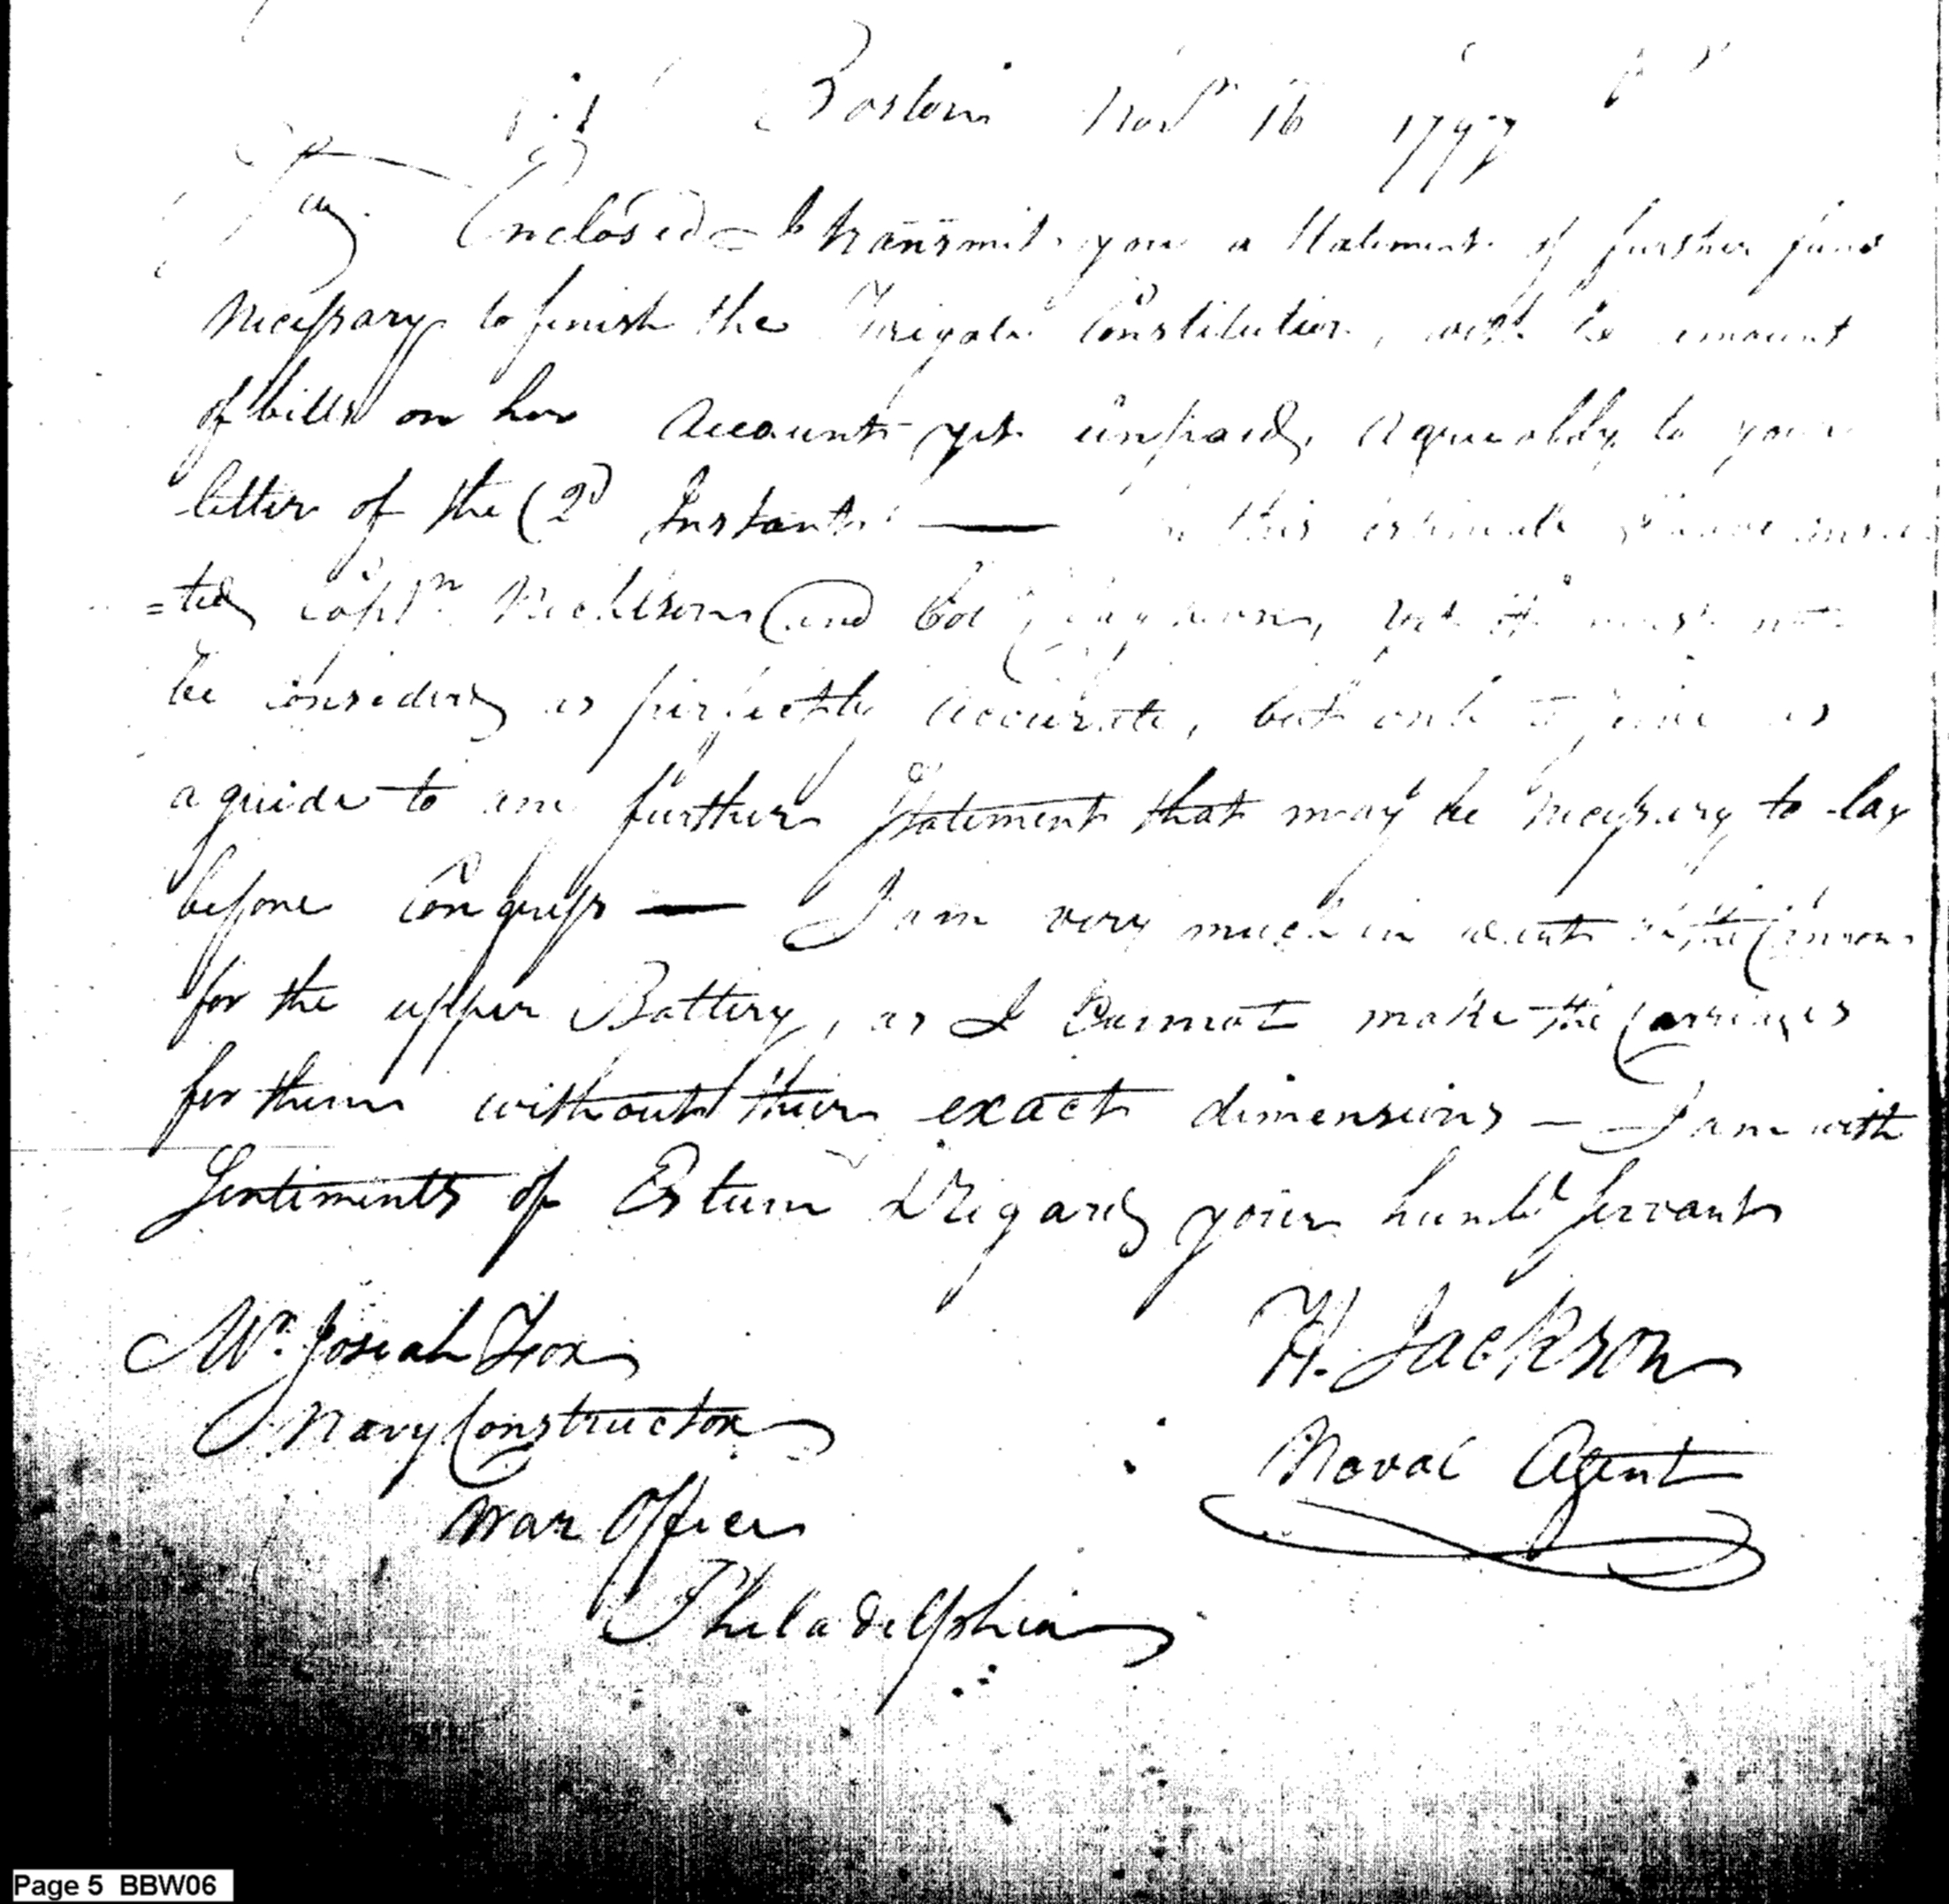 Boston Nov.r 16 1797
Enclosed I transmit you a Statement of further fund
necessary to finish the Frigate Constitution, with the amount
of bills on her Account yet unpaid, agreeably to your
letter of the 2d Instant — In this estimate I have
=ted Capt.n Nicholson and Col Claghorn, but it must not
be considered as perfectly accurate, but only to serve as
a guide to any further Statement that may be necessary to lay
before Congress — I am very much in want of the Cannon
for the upper Battery, as I Cannot make the Carriages
for them without their exact dimensions — I am with
Sentiments of Esteem & Regard your humbl Servant
Mr. Josiah Fox
H. Jackson
Navy Constructor
Naval Agent
War Office
Philadelphia
Page 5 BBW06